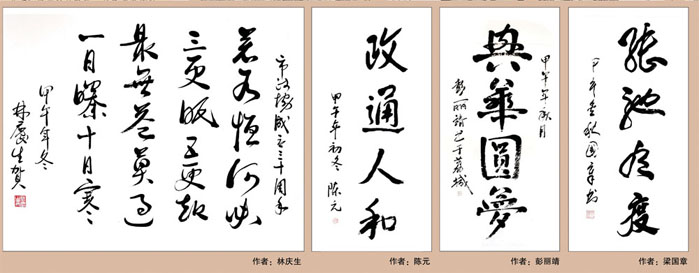 市政协成立三十周年
若有恒何必
三更眠五更起
最無益莫過
一日曝十日寒
甲午年冬
林慶生贺
作者：林庆生
政通人和
甲午年初冬 陈元
作者：陈元
甲午年秋月
興華圓夢
作者：彭丽靖
張弛有度
甲午金秋国章书
作者：梁国章